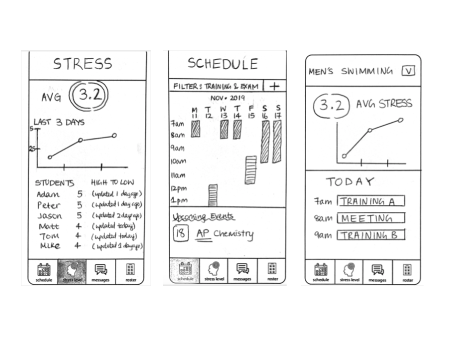 STRESS
AVG 3.2
LAST 3 DAYS
5
2.5
STUDENTS HIGH TO LOW
Adam 5 (updated 1 day ago)
Peter 5 (updated 1 day ago)
Jason 5 (updated 2 days ago)
Matt 4 (updated today)
Tom 4 (updated today)
Mike 4 (updated 3 days ago)
schedule stress level messages roster
SCHEDULE
FILTER: TRAINING & EXAM +
NOV 2019
M T W T F S S
11 12 13 14 15 16 17
7am
8am
9am
10am
11am
12pm
1pm
Upcoming Events
18 AP Chemistry
schedule stress level messages roster
MEN'S SWIMMING V
3.2 AVG STRESS
TODAY
7am TRAINING A
8am MEETING
9am TRAINING B
schedule stress level messages roster